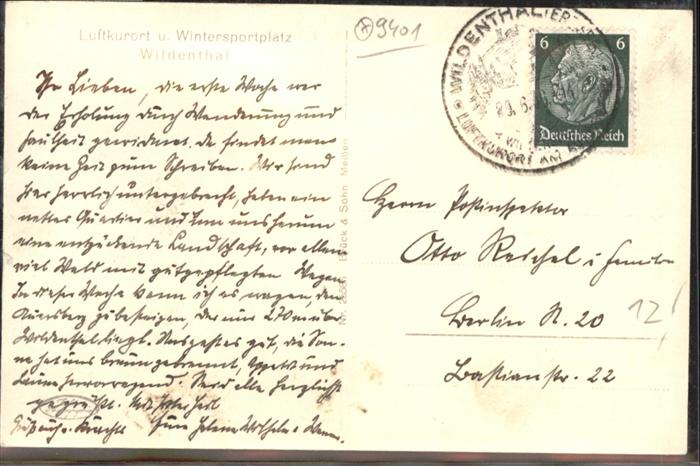 Luftkurort u. Wintersportplatz
Wildenthal
9401
Ihr Lieben, die erste Woche war
der Erholung durch Wanderung und
Faulheit gewidmet. Da findet man
keine Zeit zum Schreiben. Wir sind
hier herrlich untergebracht, haben ein
nettes Quartier und um uns herum
eine entzückende Landschaft, vor allem
viel Wald mit gutgepflegten Wegen.
In dieser Woche kann ich es wagen, den
Auersberg zu besteigen, der nur 270 m über
Wildenthal liegt. Uns geht es gut, die Son-
ne hat uns braun gebrannt, Appetit und
Laune hervorragend. Seid alle herzlichst
gegrüßt.
Eure Helene Wilhelm
Brück & Sohn Meißen
WILDENTHAL
LUFTKURORT AM
6 6
Deutsches Reich
Herrn Postinspektor
Otto Reichel u. Familie
Berlin N. 20
12
Bastianstr. 22